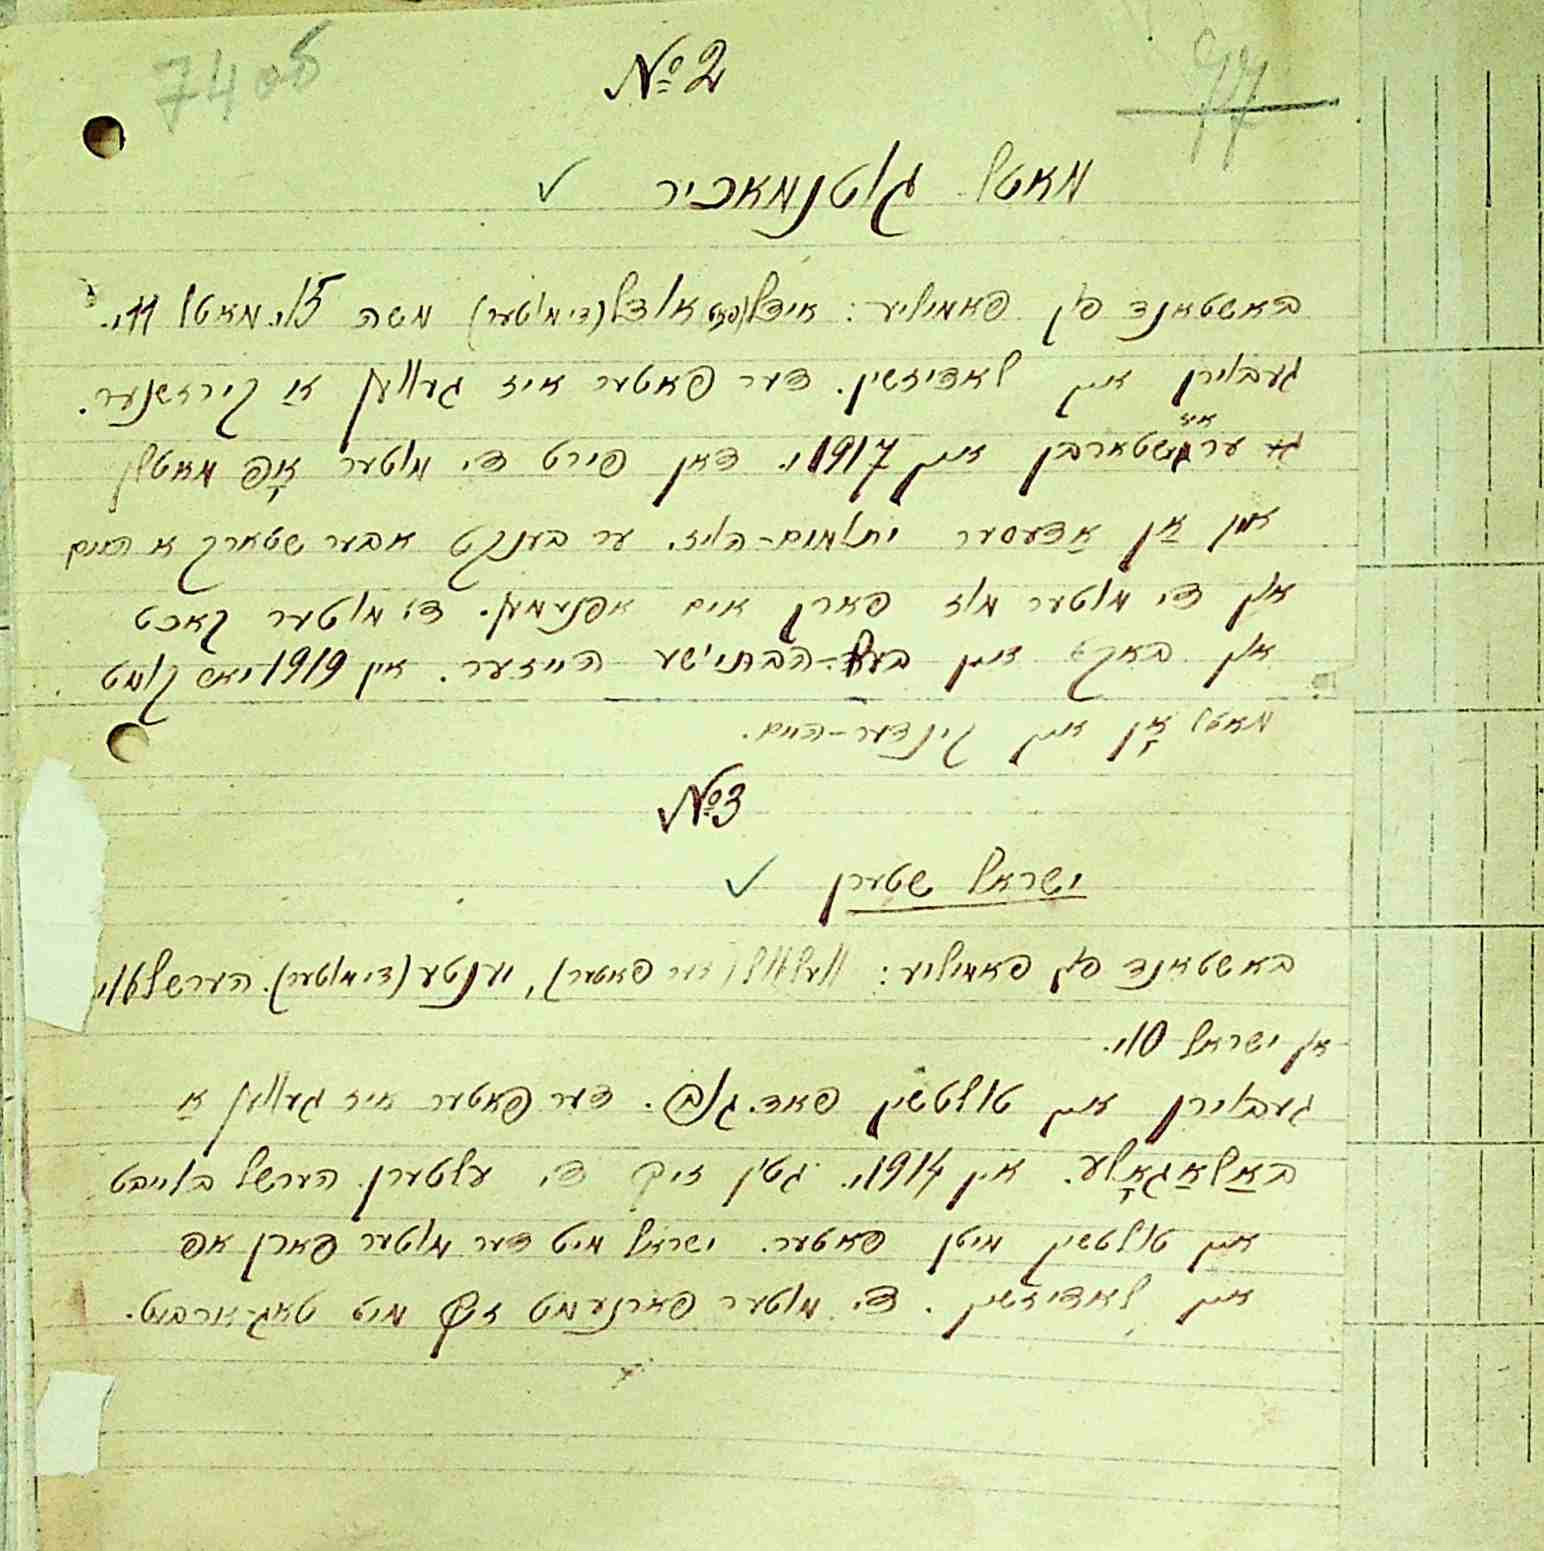 740б
№ 2
77
מאטל גוטנמאכיר ✓
באשטאנד פון פאמיליע: אידל (פאט אודל (די מוטער) משה 15 י. מאטל 11 י.
געבוירן אין לאדיזשין. דער פאטער איז געווען אַ קירזשנער.
ער איז געשטארבן אין 1917 י. דאן פירט די מוטער אָפ מאטלן
אין אַן אַדעסער יתומים-הויז. ער בענקט אבער שטארק א היים
און די מוטער מוז פארן אים אפנעמען. די מוטער קאכט
און באקט אין בעל-הבתי'שע הייזער. אין 1919 יאר קומט
מאטל אָן אין קינדער-היים.
№ 3
ישראל שטערן ✓
באשטאנד פון פאמיליע: וועלוול (דער פאטער), יענטע (די מוטער). הערשל 16 י.
און ישראל 10 י.
געבוירן אין טולטשין פאד. גוב. דער פאטער איז געווען אַ
באַלאַגאָלע. אין 1914 י. גט'ן זיך די עלטערן. הערשל בלייבט
אין טולטשין מיטן פאטער. ישראל מיט דער מוטער פארן אפ
אין לאדיזשין. די מוטער פארנעמט זיך מיט טאג-ארבייט.